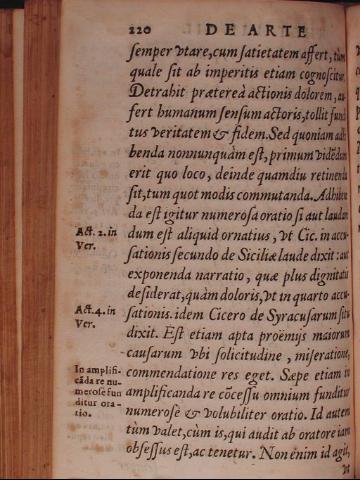 220 DE ARTE
semper vtare, cum satietatem affert, tùm
quale sit ab imperitis etiam cognoscitur
Detrahit prætereà actionis dolorem, au-
fert humanum sensum actoris, tollit fundi
tus veritatem & fidem. Sed quoniam adhi
benda nonnunquàm est, primum vidēdum
erit quo loco, deinde quamdiu retinenda
sit, tum quot modis commutanda. Adhiben
da est igitur numerosa oratio si aut laudan
Act. 2. in
Ver.
dum est aliquid ornatius, vt Cic. in accu-
sationis secundo de Siciliæ laude dixit: aut
exponenda narratio, quæ plus dignitatis
desiderat, quàm doloris, vt in quarto accu-
Act. 4. in
Ver.
sationis. idem Cicero de Syracusarum situ
dixit. Est etiam apta proëmijs maiorum
causarum vbi solicitudine, miseratione,
In amplifi-
cāda re nu-
merose fun
ditur ora-
tio.
commendatione res eget. Sæpe etiam in
amplificanda re cōcessu omnium funditur
numerose & volubiliter oratio. Id autem
tùm valet, cùm is, qui audit ab oratore iam
obsessus est, ac tenetur. Non enim id agit,